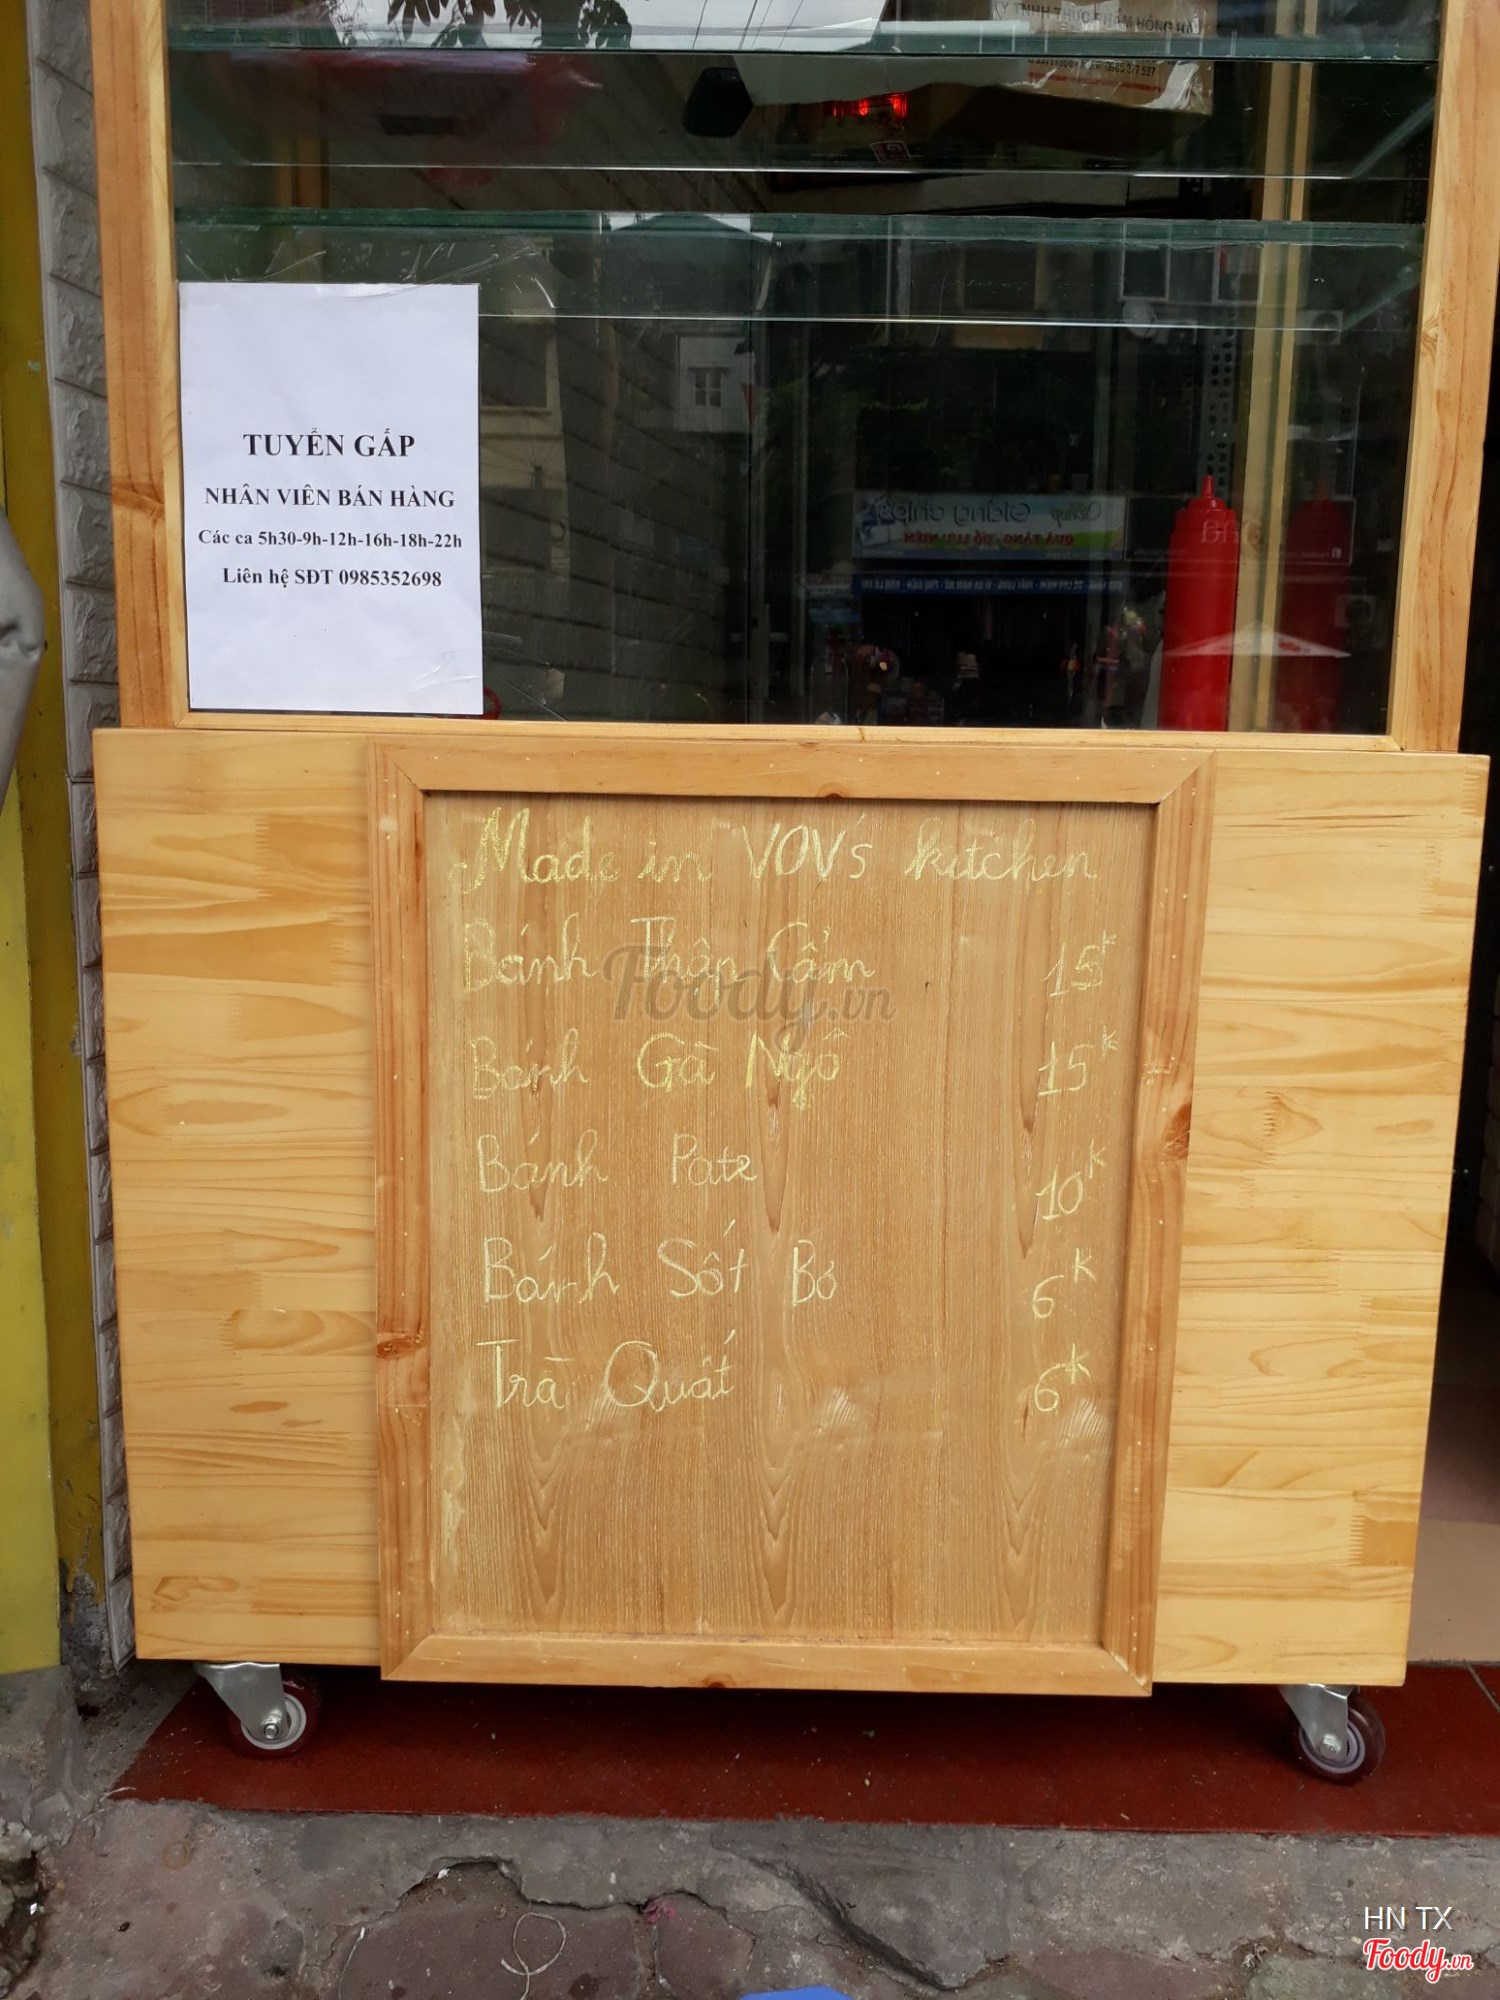 TUYỂN GẤP
NHÂN VIÊN BÁN HÀNG
Các ca 5h30-9h-12h-16h-18h-22h
Liên hệ SĐT 0985352698
Made in VOV's kitchen
Bánh Thập Cẩm 15k
Bánh Gà Ngô 15k
Bánh Pate 10k
Bánh Sốt Bơ 6k
Trà Quất 6k
Foody.vn
HN TX
Foody.vn